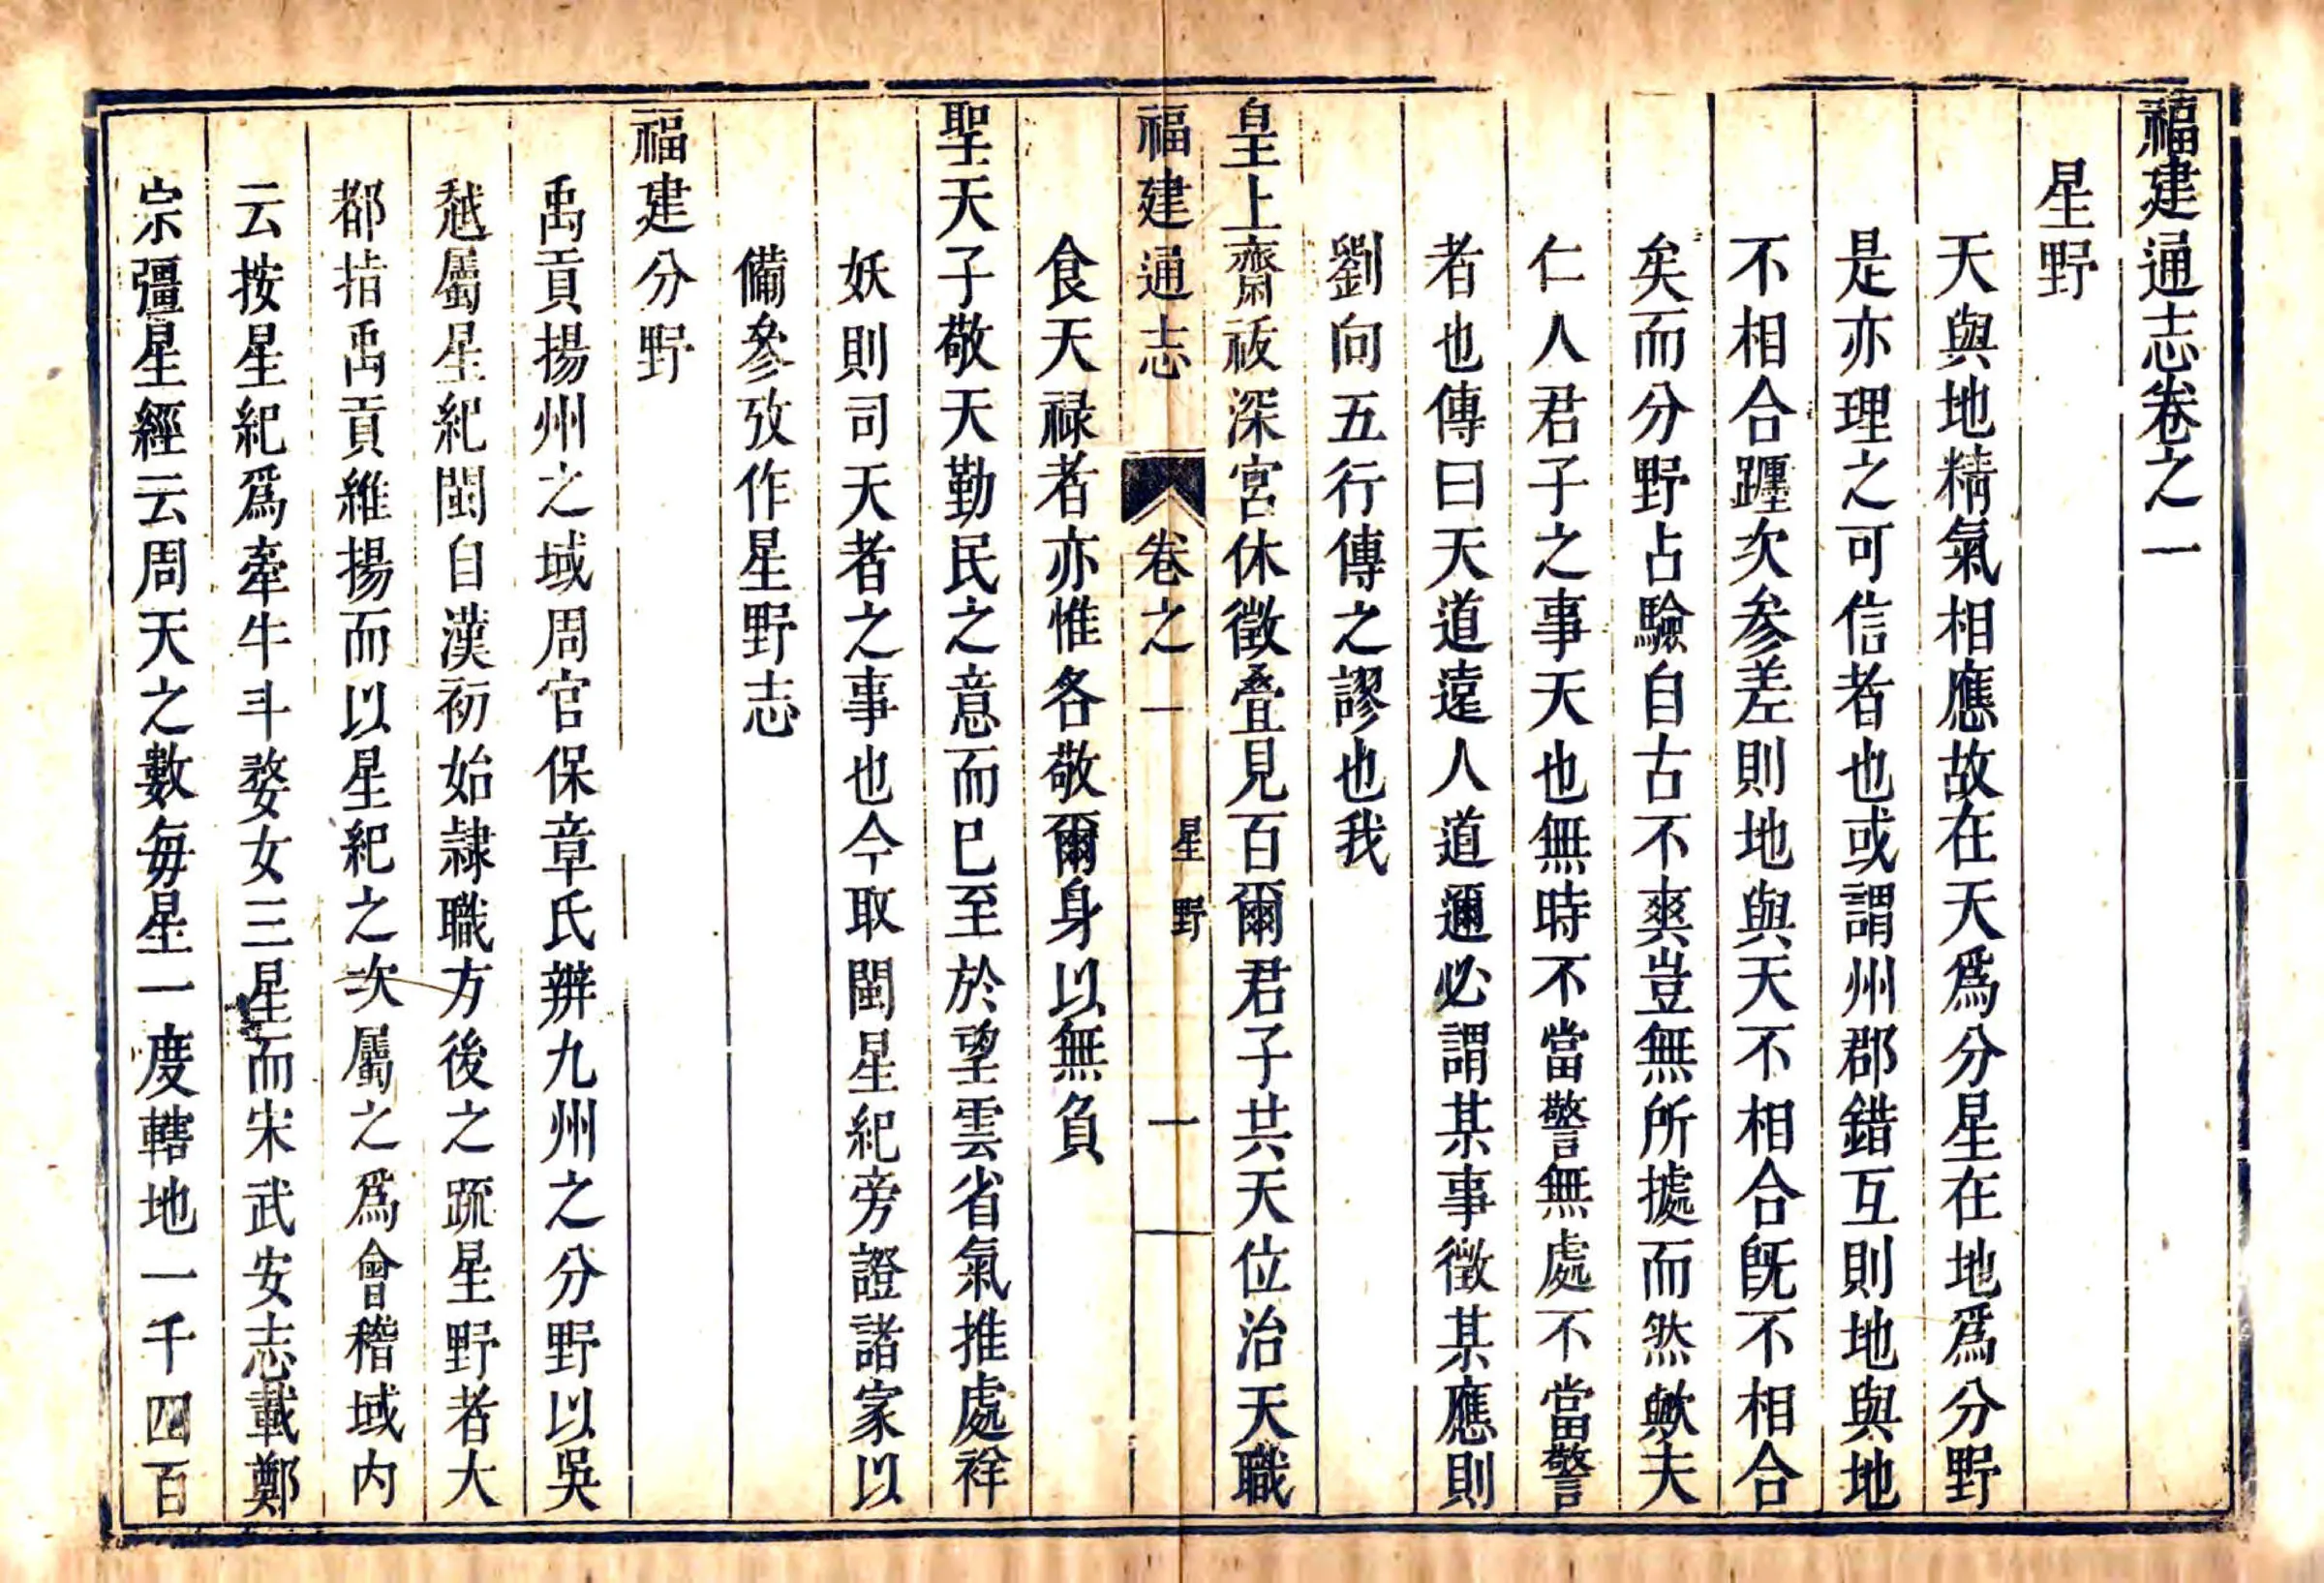 福建通志卷之一
星野
天與地精氣相應故在天爲分星在地爲分野
是亦理之可信者也或謂州郡錯互則地與地
不相合躔次参差則地與天不相合旣不相合
矣而分野占驗自古不爽豈無所據而然歟夫
仁人君子之事天也無時不當警無處不當警
者也傳曰天道遠人道邇必謂某事徵某應則
劉向五行傳之謬也我
皇上齋祓深宮休徵疊見百爾君子共天位治天職
福建通志 卷之一 星野 一
食天禄者亦惟各敬爾身以無負
聖天子敬天勤民之意而已至於望雲省氣推處祥
妖則司天者之事也今取閩星紀旁證諸家以
備參攷作星野志
福建分野
禹貢揚州之域周官保章氏辨九州之分野以吳
越屬星紀閩自漢初始隷職方後之疏星野者大
都㨖禹貢維揚而以星紀之次屬之爲會稽域内
云按星紀爲牽牛斗婺女三星而宋武安志載鄭
宗彊星經云周天之數每星一度轄地一千四百